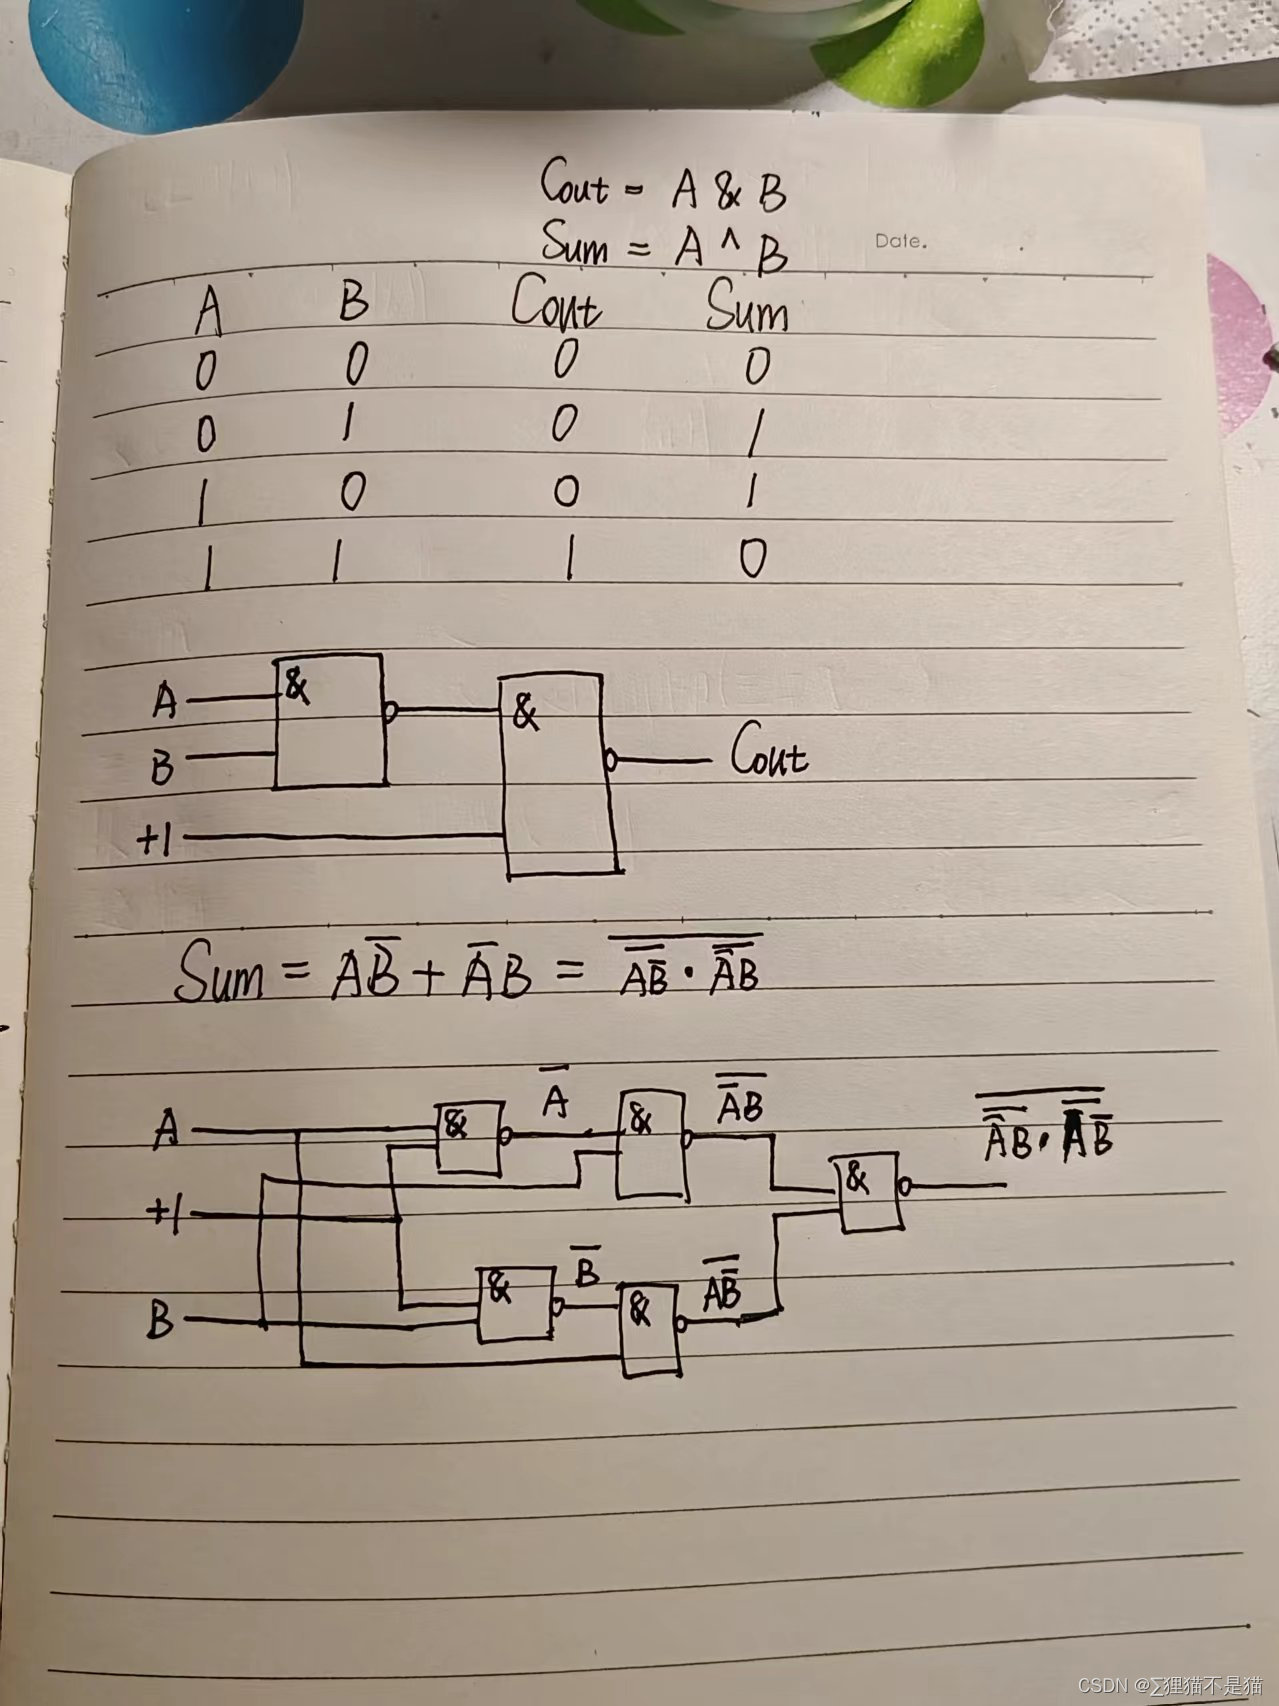 Cout = A & B
Sum = A ^ B
Date.
A B Cout Sum
0 0 0 0
0 1 0 1
1 0 0 1
1 1 1 0
A & & Cout
B
+1
Sum = AB̅ + A̅B = \overline{\overline{AB̅} · \overline{A̅B}}
A̅ \overline{A̅B} \overline{\overline{A̅B} · \overline{AB̅}}
A & &
&
+1
B̅ \overline{AB̅}
B & &
CSDN @∑狸猫不是猫